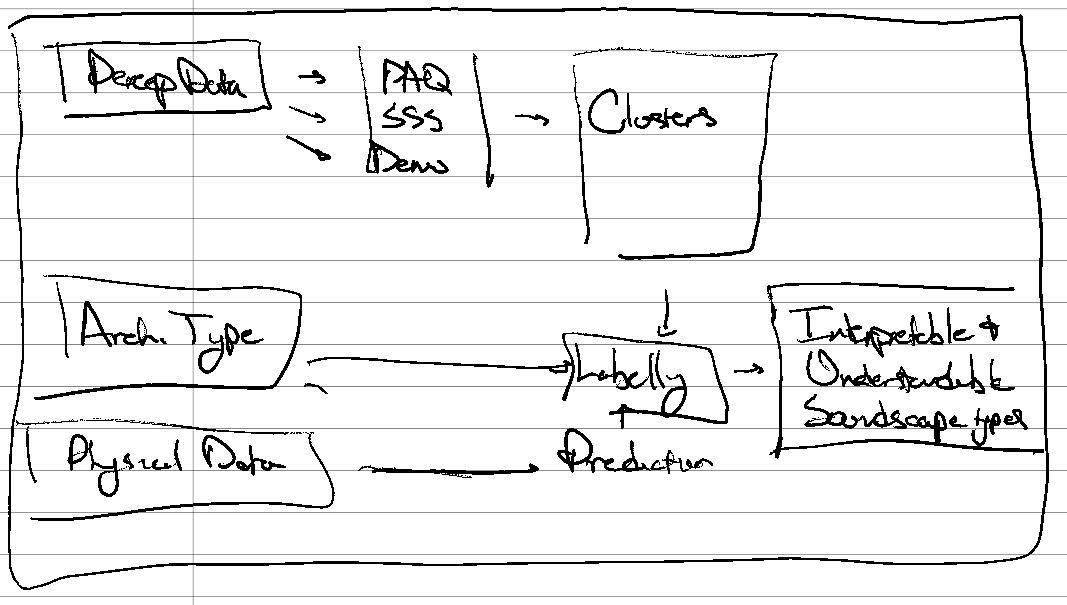 Percep Data
PAQ
SSS
Demo
Clusters
Arch. Type
Labelly
Interpretable &
Understandable
Soundscape types
Physical Data
Prediction